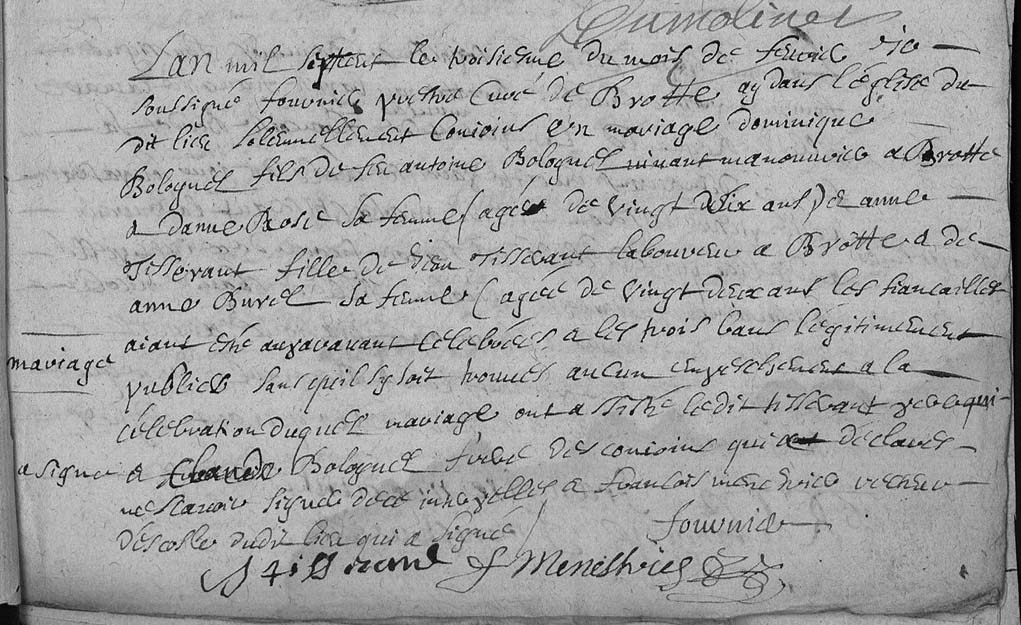 Dumolinet
Lan mil septcent le troisieme du mois de fevrie Je
soussigné fournier prestre Curé de Brotte ay dans leglise du
dit lieu solennellement Conioins en mariage dominique
Bolognel fils de feu antoine Bolognel vivant manouvrie a Brotte
& danne Rose sa femme (agé de vingt deux ans) & anne
Tisserant fille de Tisserant laboureur a Brotte & de
anne Burel sa femme (agée de vingt deux ans les fiancailles
aiant este auparavant célébrées & les trois bans légitimement
mariage
publies sans quil sy soit trouvés aucun empeschement a la
célébration duquel mariage ont assisté ledit tisserant pere qui
a signé & Claude Bolognel frere des conioins qui declares
ne scavoir signer de ce interpellés & francois menestrie recteur
descolle dudit lieu qui a signé
fournier
tisserant f Menestries